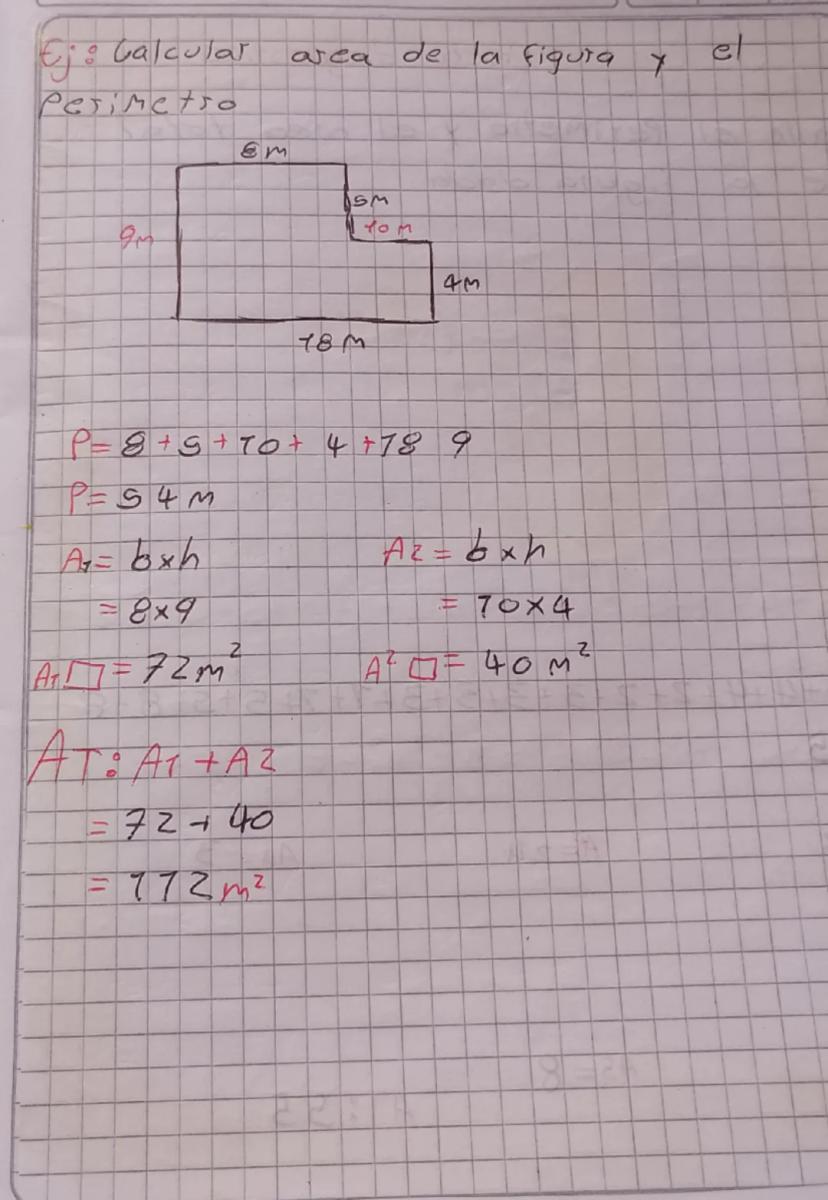 Ej: Calcular area de la figura y el
Perimetro
8m
5m
10m
9m
4m
18m
P= 8+5+10+ 4 +18 9
P= 54m
A1= b×h
A2= b×h
= 8×9
= 10×4
A1□ = 72m²
A²□ = 40m²
AT: A1 + A2
= 72+40
= 112m²